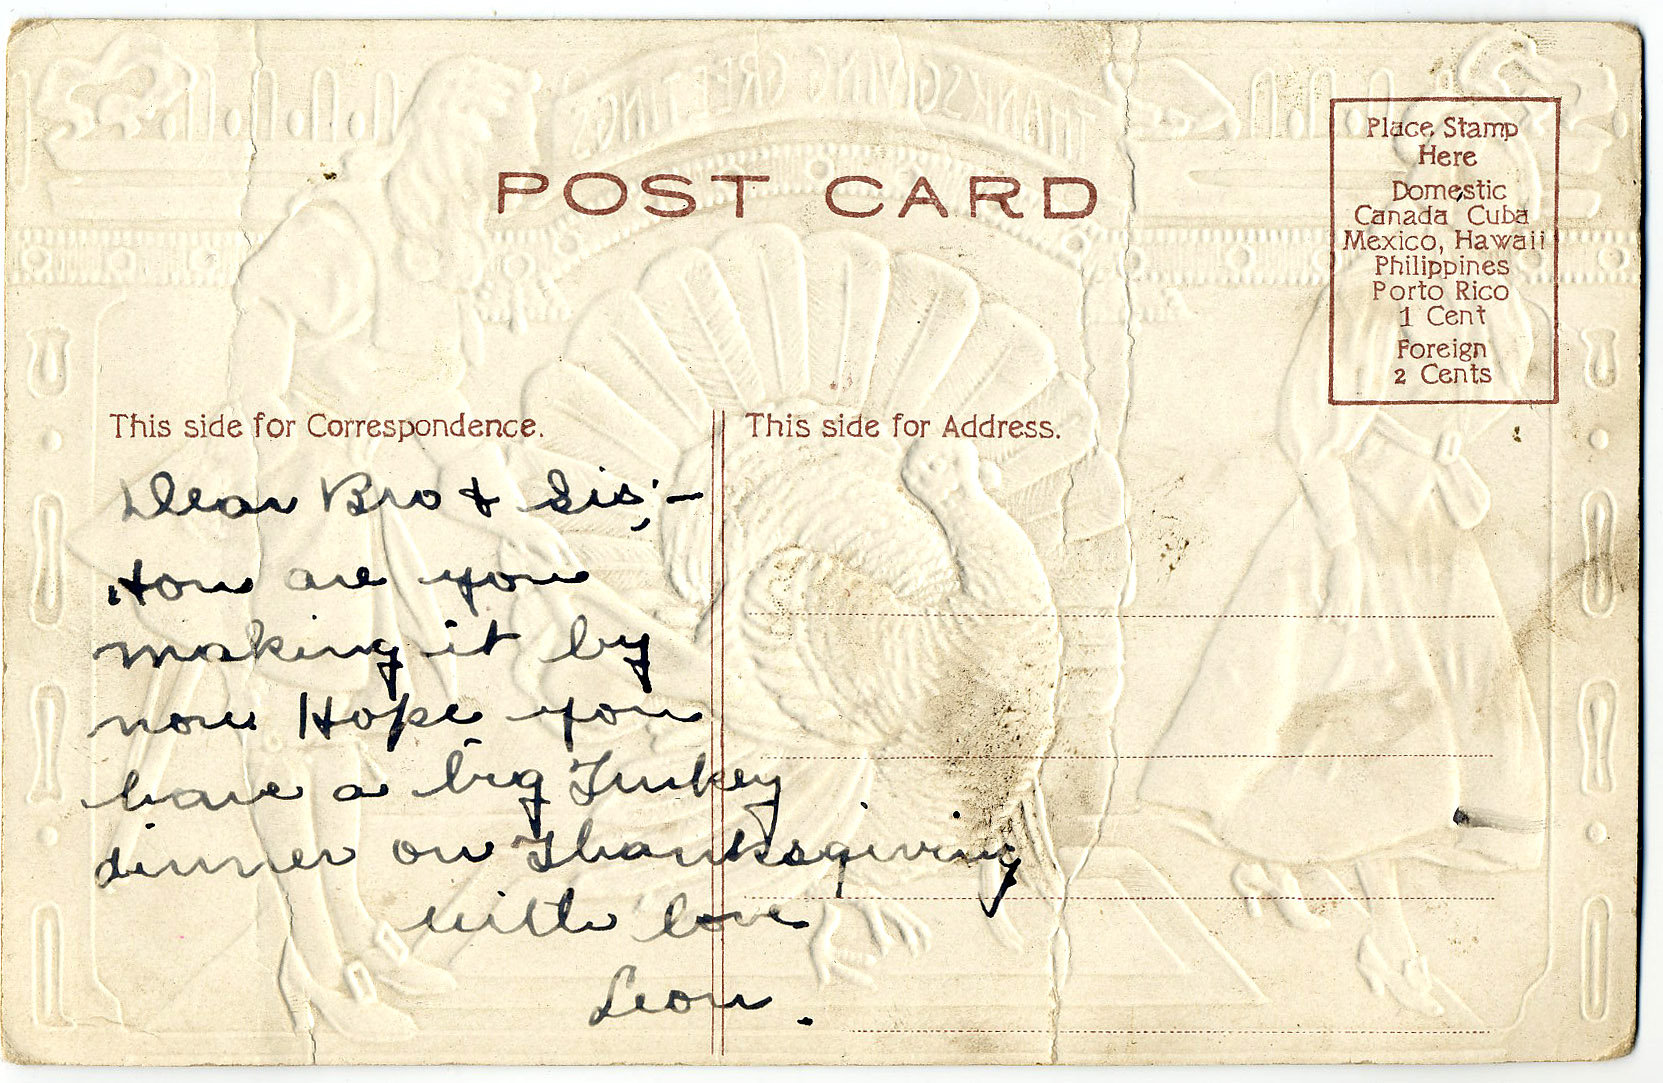 THANKSGIVING GREETINGS
POST CARD
Place Stamp
Here
Domestic
Canada Cuba
Mexico, Hawaii
Philippines
Porto Rico
1 Cent
Foreign
2 Cents
This side for Correspondence.
This side for Address.
Dear Bro & Sis;—
How are you
making it by
now Hope you
have a big Turkey
dinner on Thanksgiving
with love
Leon.